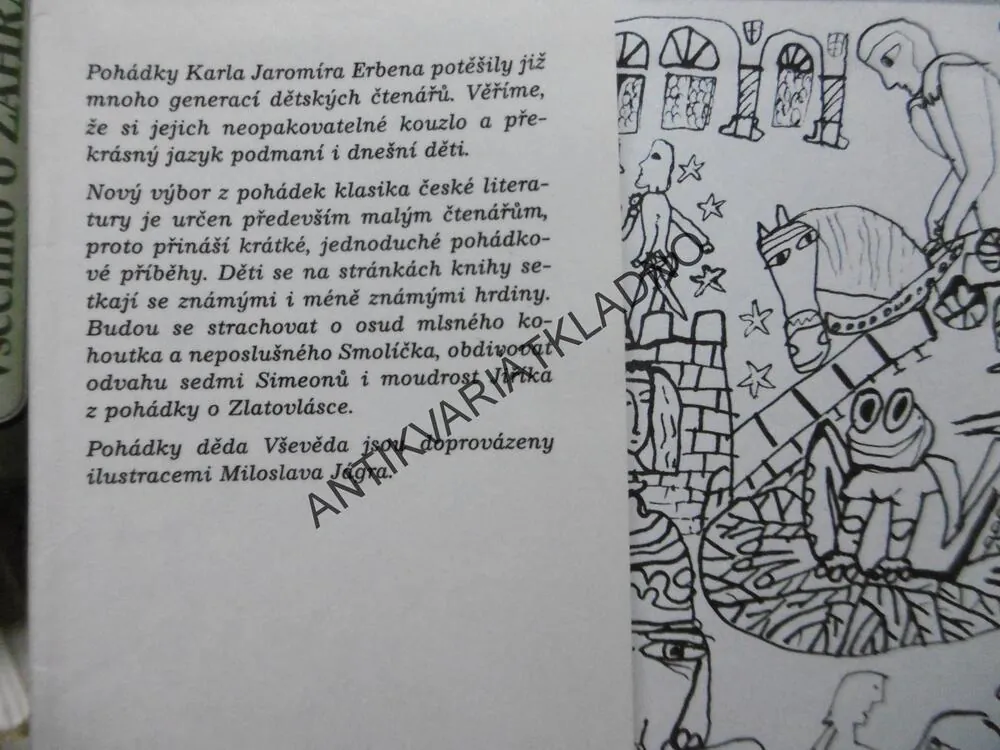 Pohádky Karla Jaromíra Erbena potěšily již
mnoho generací dětských čtenářů. Věříme,
že si jejich neopakovatelné kouzlo a pře-
krásný jazyk podmaní i dnešní děti.
Nový výbor z pohádek klasika české litera-
tury je určen především malým čtenářům,
proto přináší krátké, jednoduché pohádko-
vé příběhy. Děti se na stránkách knihy se-
tkají se známými i méně známými hrdiny.
Budou se strachovat o osud mlsného ko-
houtka a neposlušného Smolíčka, obdivovat
odvahu sedmi Simeonů i moudrost Jiříka
z pohádky o Zlatovlásce.
Pohádky děda Vševěda jsou doprovázeny
ilustracemi Miloslava Jágra.
ANTIKVARIATKLADNO